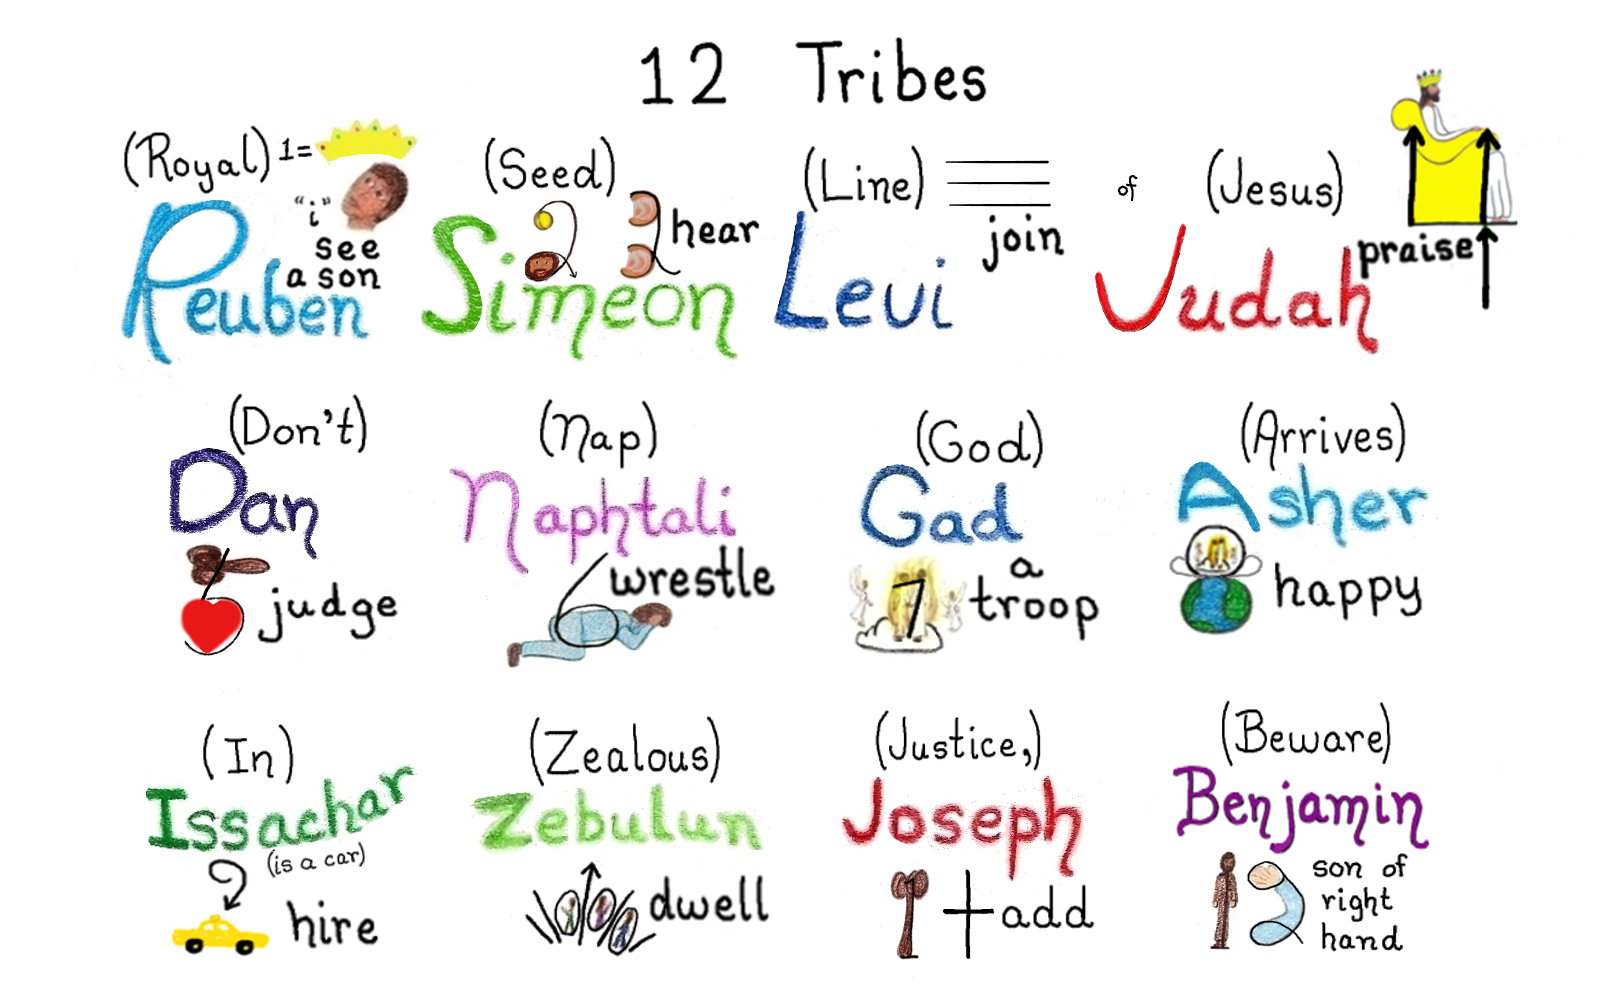 12 Tribes
(Royal) 1=
"i"
see
a son
Reuben
(Seed)
hear
Simeon
(Line)
join
Levi
of
(Jesus)
praise
Judah
(Don't)
Dan
judge
(Nap)
Naphtali
wrestle
(God)
Gad
7
a
troop
(Arrives)
Asher
happy
(In)
Issachar
(is a car)
hire
(Zealous)
Zebulun
dwell
(Justice,)
Joseph
+ add
(Beware)
Benjamin
son of
right
hand